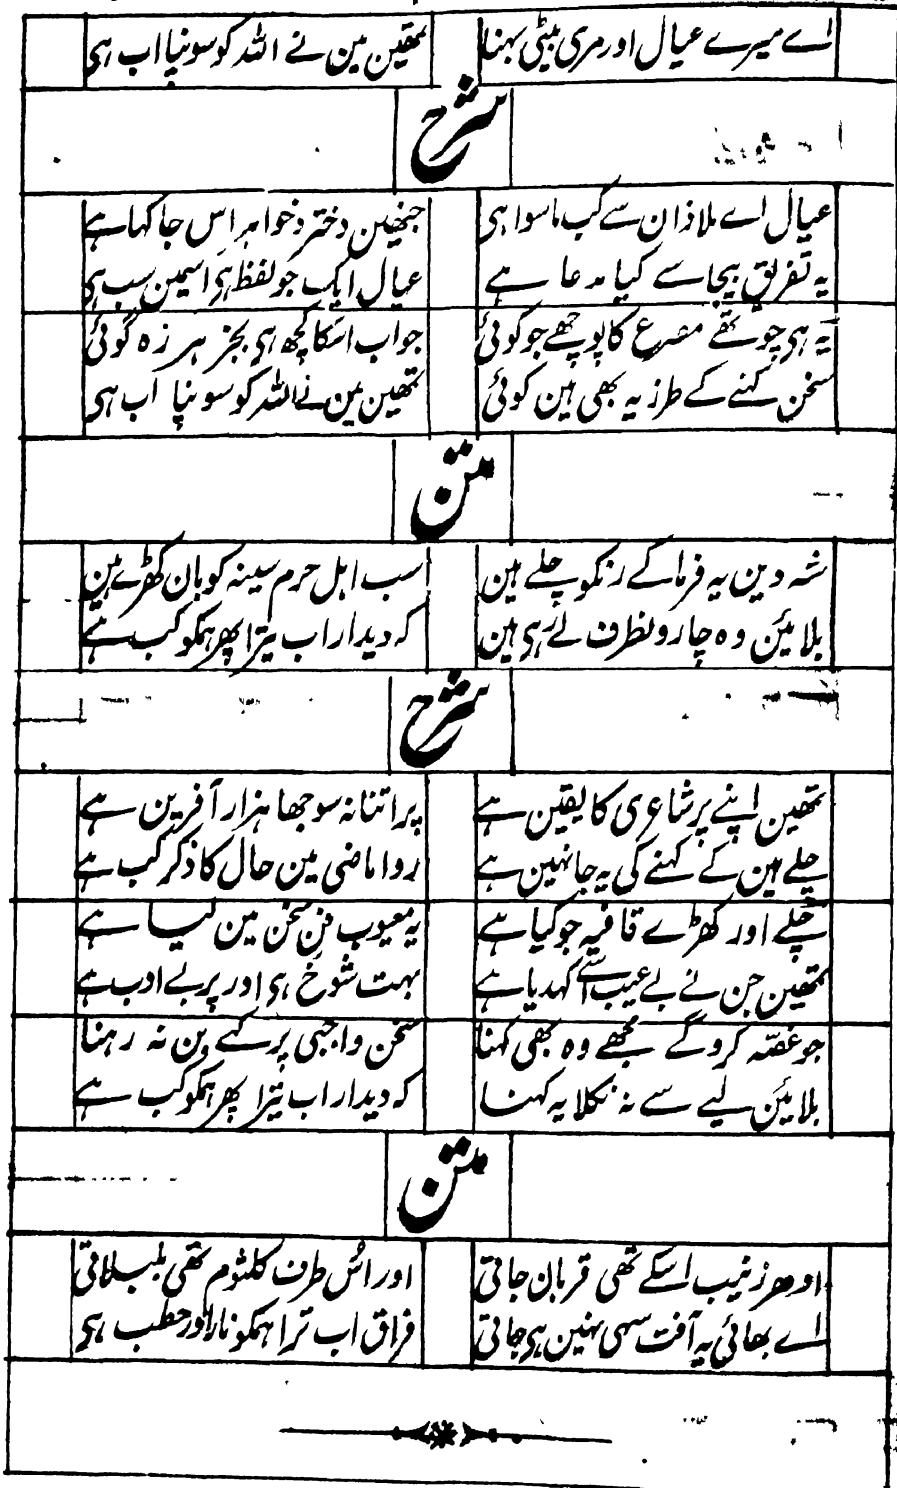 اے میرے عیال اور مری بیٹی بہنا تمھین مین نے اللہ کو سونپا اب ہی
شرح
عیال اے ملاذان سے کب ماسوا ہی جنھین دختر و خواہر اس جا کہا ہے
یہ تفریق بیجا سے کیا مدعا ہے عیال ایک جو لفظ ہی اسمین سب ہی
یہ ہی چوتھے مصرع کا پوچھے جو کوئی جواب اسکا کچھ ہی بجز ہرزہ گوئی
سخن کہنے کے طرز یہ بھی ہین کوئی تمھین مین نے اللہ کو سونپا اب ہی
متن
شہ دین یہ فرما کے رنکو چلے ہین سب اہل حرم سینہ کوبان کھڑے ہین
بلائین وہ چارونطرف لے رہی ہین کہ دیدار اب تیرا پھر ہمکو کب ہے
شرح
تمھین اپنے پر شاعری کا یقین ہے پر اتنا نہ سوجھا ہزار آفرین ہے
چلے ہین کے کہنے کی یہ جا نہین ہے روا ماضی مین حال کا ذکر کب ہے
چلے اور کھڑے قافیہ جو کیا ہے یہ معیوب فن سخن مین لیا ہے
تمھین جن نے بے عیب اسے کہدیا ہے بہت شوخ ہی اور پر بے ادب ہے
جو غصہ کروگے مجھے وہ بھی کہنا سخن واجبی پر کہے بن نہ رہنا
بلائین لیے سے نہ نکلا یہ کہنا کہ دیدار اب تیرا پھر ہمکو کب ہے
متن
ادھر زینب اسکے تھی قربان جاتی اور اُس طرف کلثوم تھی بلبلاتی
اے بھائی یہ آفت سہی نہین ہی جاتی فراق اب ترا ہمکو نار اور حطب ہی